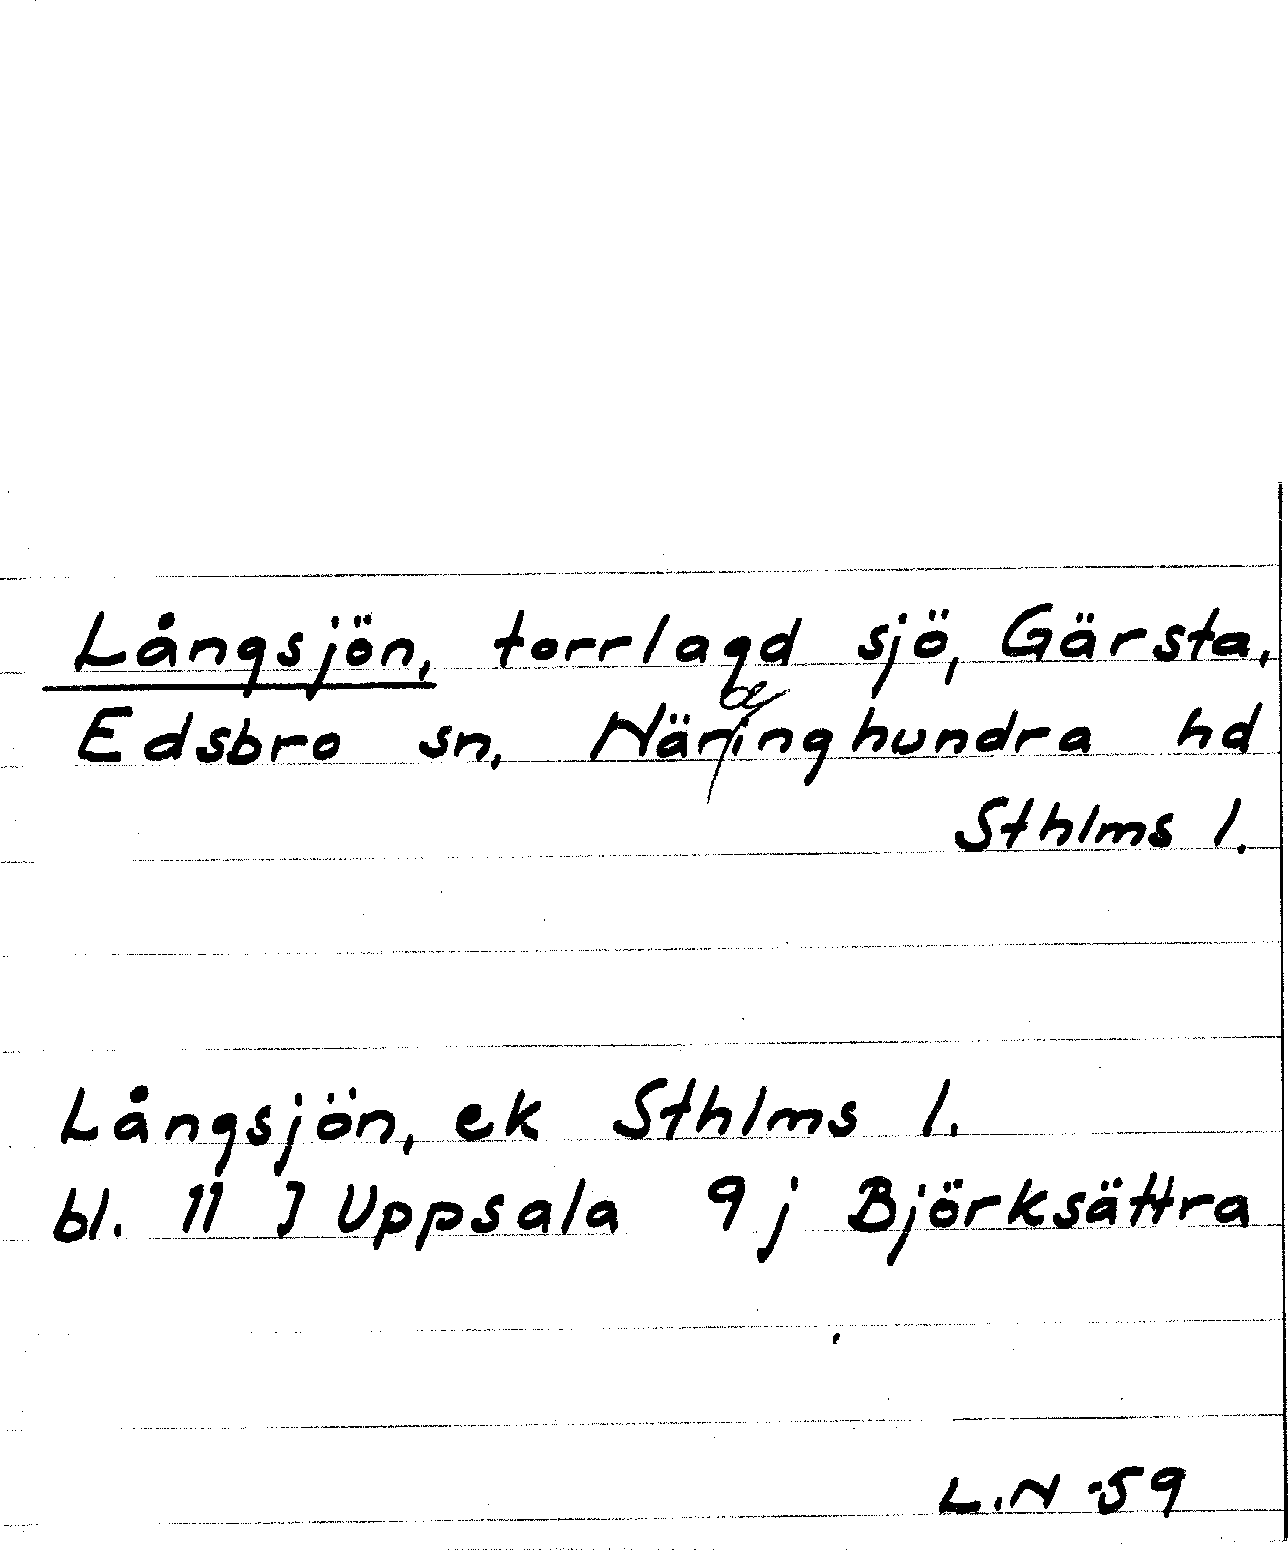 Långsjön, torrlagd sjö, Gärsta,
Edsbro sn, Näringhundra hd
Sthlms l.
Långsjön, ek Sthlms l.
bl. 11 J Uppsala 9j Björksättra
L.N -59